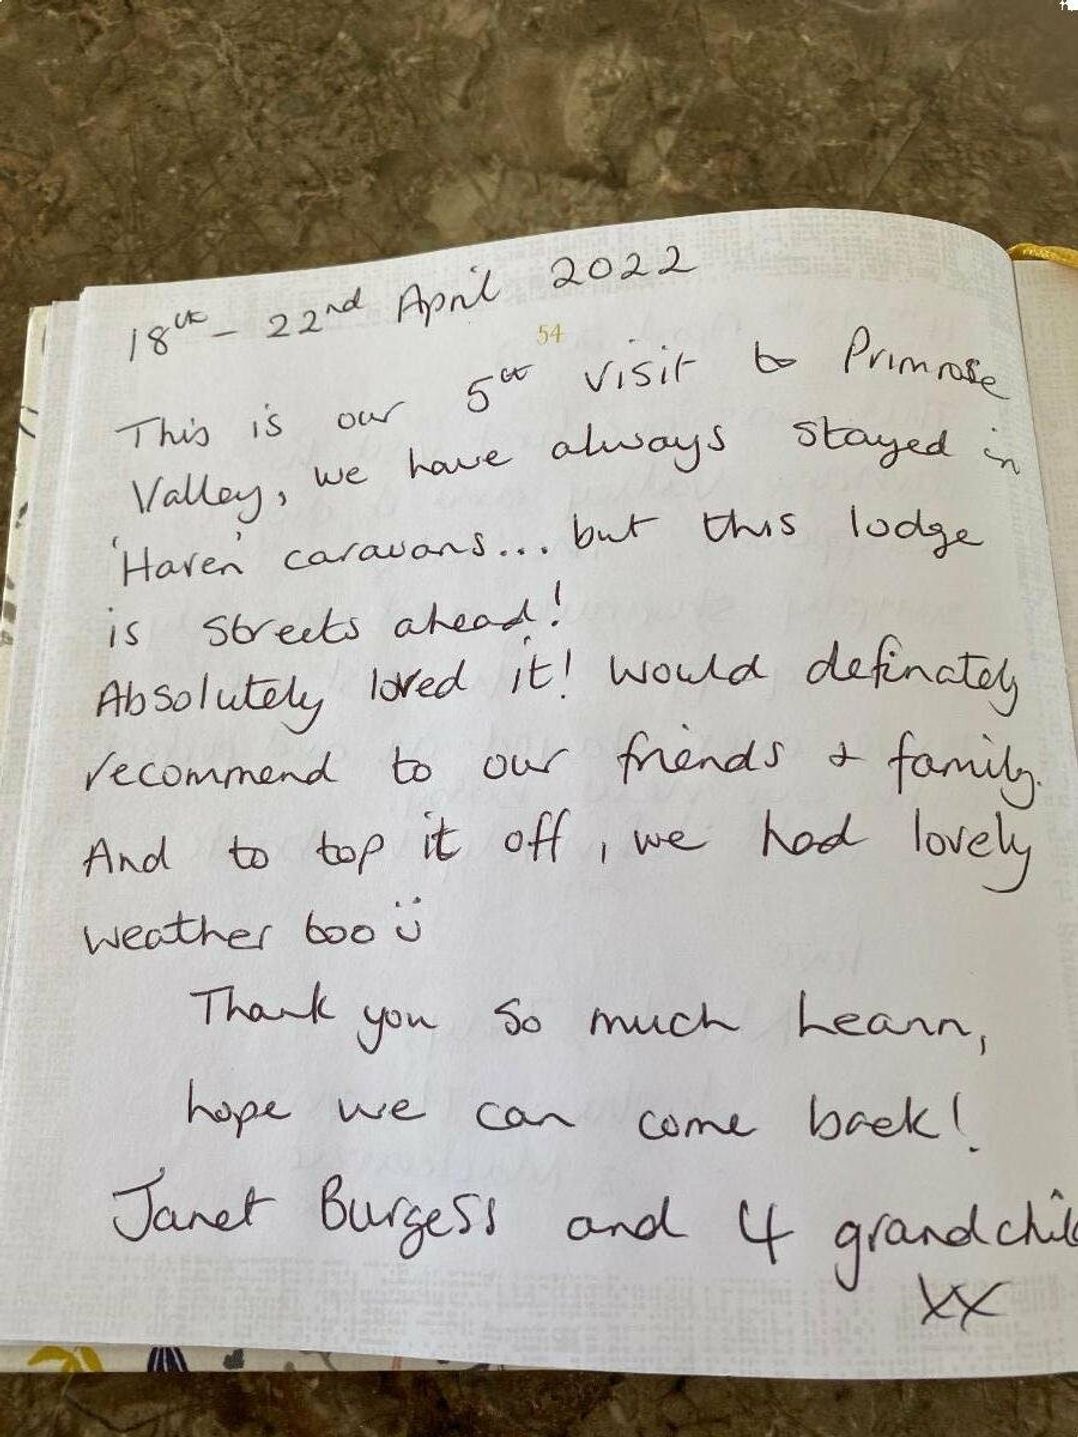 18th - 22nd April 2022
54
This is our 5th visit to Primrose
Valley, we have always stayed in
'Haven' caravans... but this lodge
is streets ahead!
Absolutely loved it! Would definately
recommend to our friends & family.
And to top it off, we had lovely
weather too ü
Thank you so much Leann,
hope we can come back!
Janet Burgess and 4 grandchild
XX